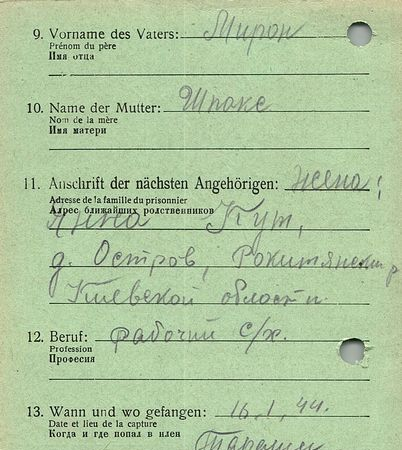 9. Vorname des Vaters: Мирон
Prénom du père
Имя отца
10. Name der Mutter: Шпакс
Nom de la mère
Имя матери
11. Anschrift der nächsten Angehörigen: жена:
Adresse de la famille du prisonnier
Адрес ближайших родственников
Анна Кут,
д. Остров, Рокитянский р
Киевской области
12. Beruf: рабочий с/х.
Profession
Професия
13. Wann und wo gefangen: 16.1.44.
Date et lieu de la capture
Когда и где попал в плен